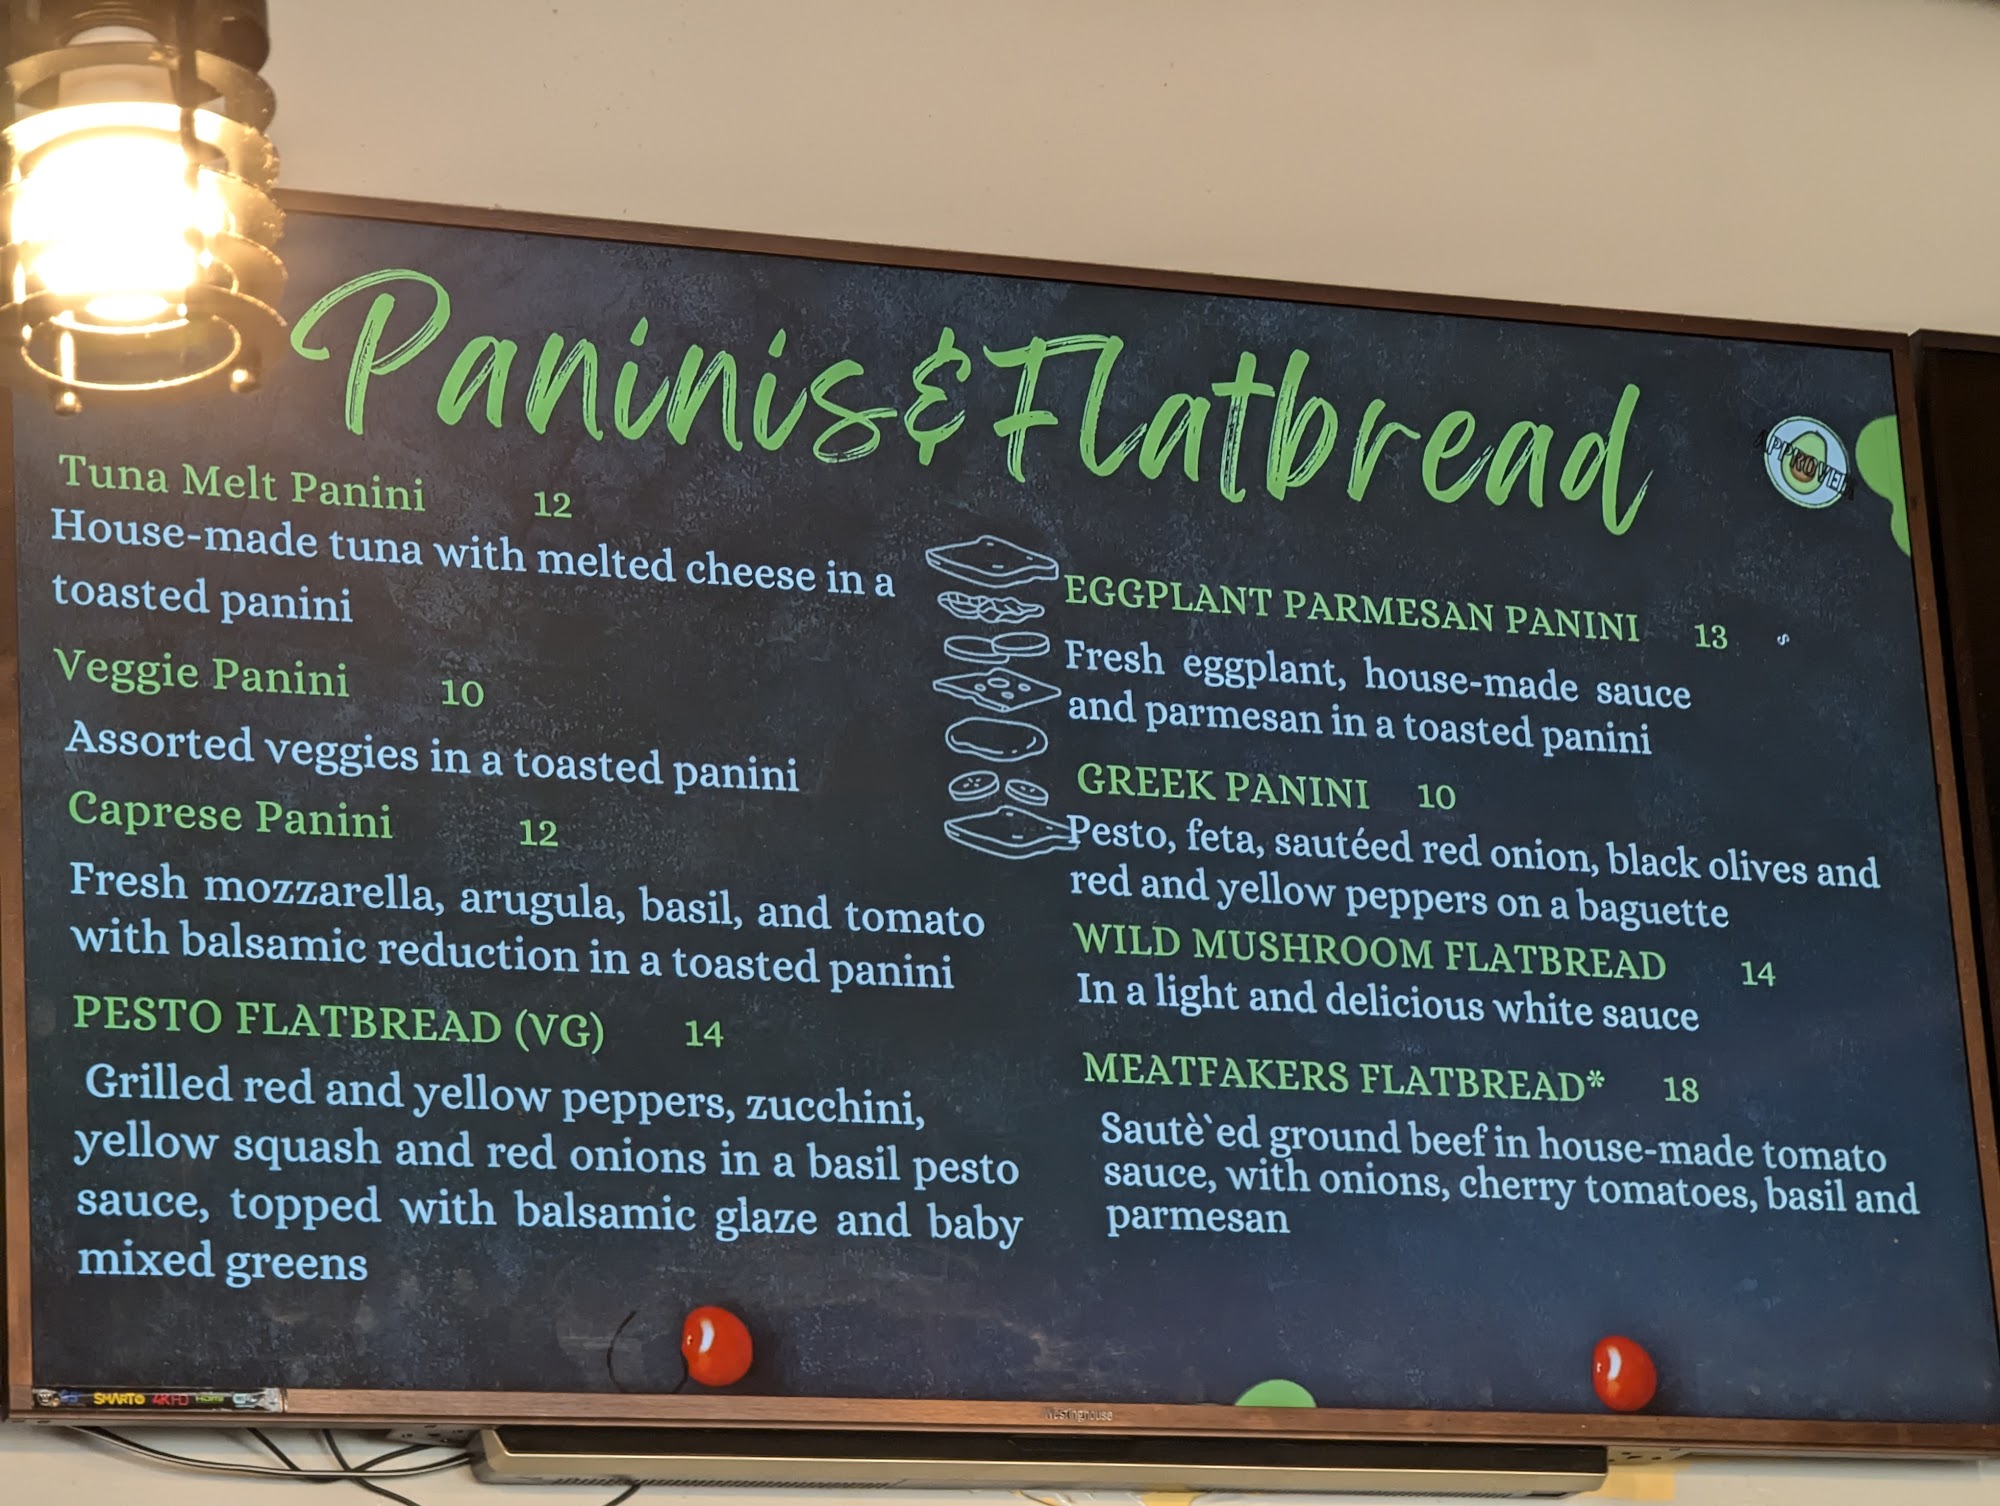 Paninis & Flatbread
APPROVED
Tuna Melt Panini 12
House-made tuna with melted cheese in a
toasted panini
Veggie Panini 10
Assorted veggies in a toasted panini
Caprese Panini 12
Fresh mozzarella, arugula, basil, and tomato
with balsamic reduction in a toasted panini
PESTO FLATBREAD (VG) 14
Grilled red and yellow peppers, zucchini,
yellow squash and red onions in a basil pesto
sauce, topped with balsamic glaze and baby
mixed greens
EGGPLANT PARMESAN PANINI 13 $
Fresh eggplant, house-made sauce
and parmesan in a toasted panini
GREEK PANINI 10
Pesto, feta, sautéed red onion, black olives and
red and yellow peppers on a baguette
WILD MUSHROOM FLATBREAD 14
In a light and delicious white sauce
MEATFAKERS FLATBREAD* 18
Sautè`ed ground beef in house-made tomato
sauce, with onions, cherry tomatoes, basil and
parmesan
SMART 4K HDMI
Westinghouse